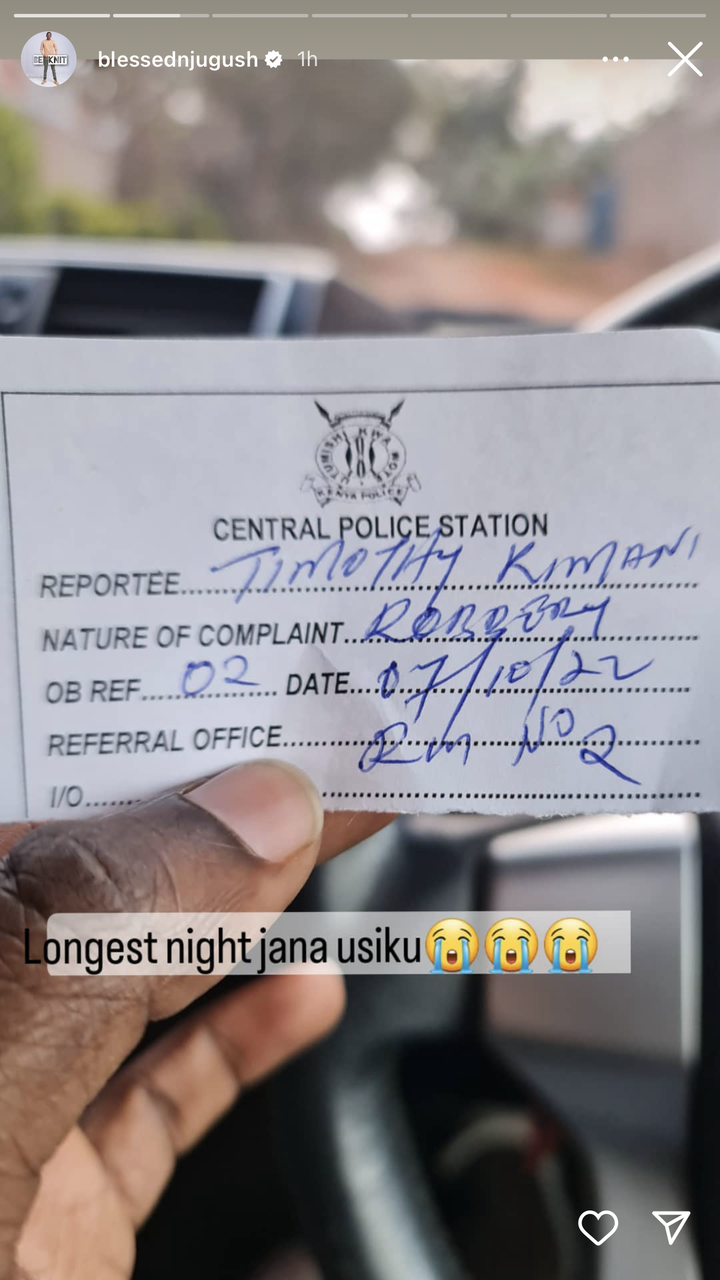 BENKNIT
blessednjugush 1h
UTUMISHI KWA WOTE
KENYA POLICE
CENTRAL POLICE STATION
REPORTEE....TIMOTHY KIMANI
NATURE OF COMPLAINT...ROBBERY
OB REF.....02........ DATE....07/10/22
REFERRAL OFFICE....Rm No 2
I/O.......
Longest night jana usiku😭😭😭